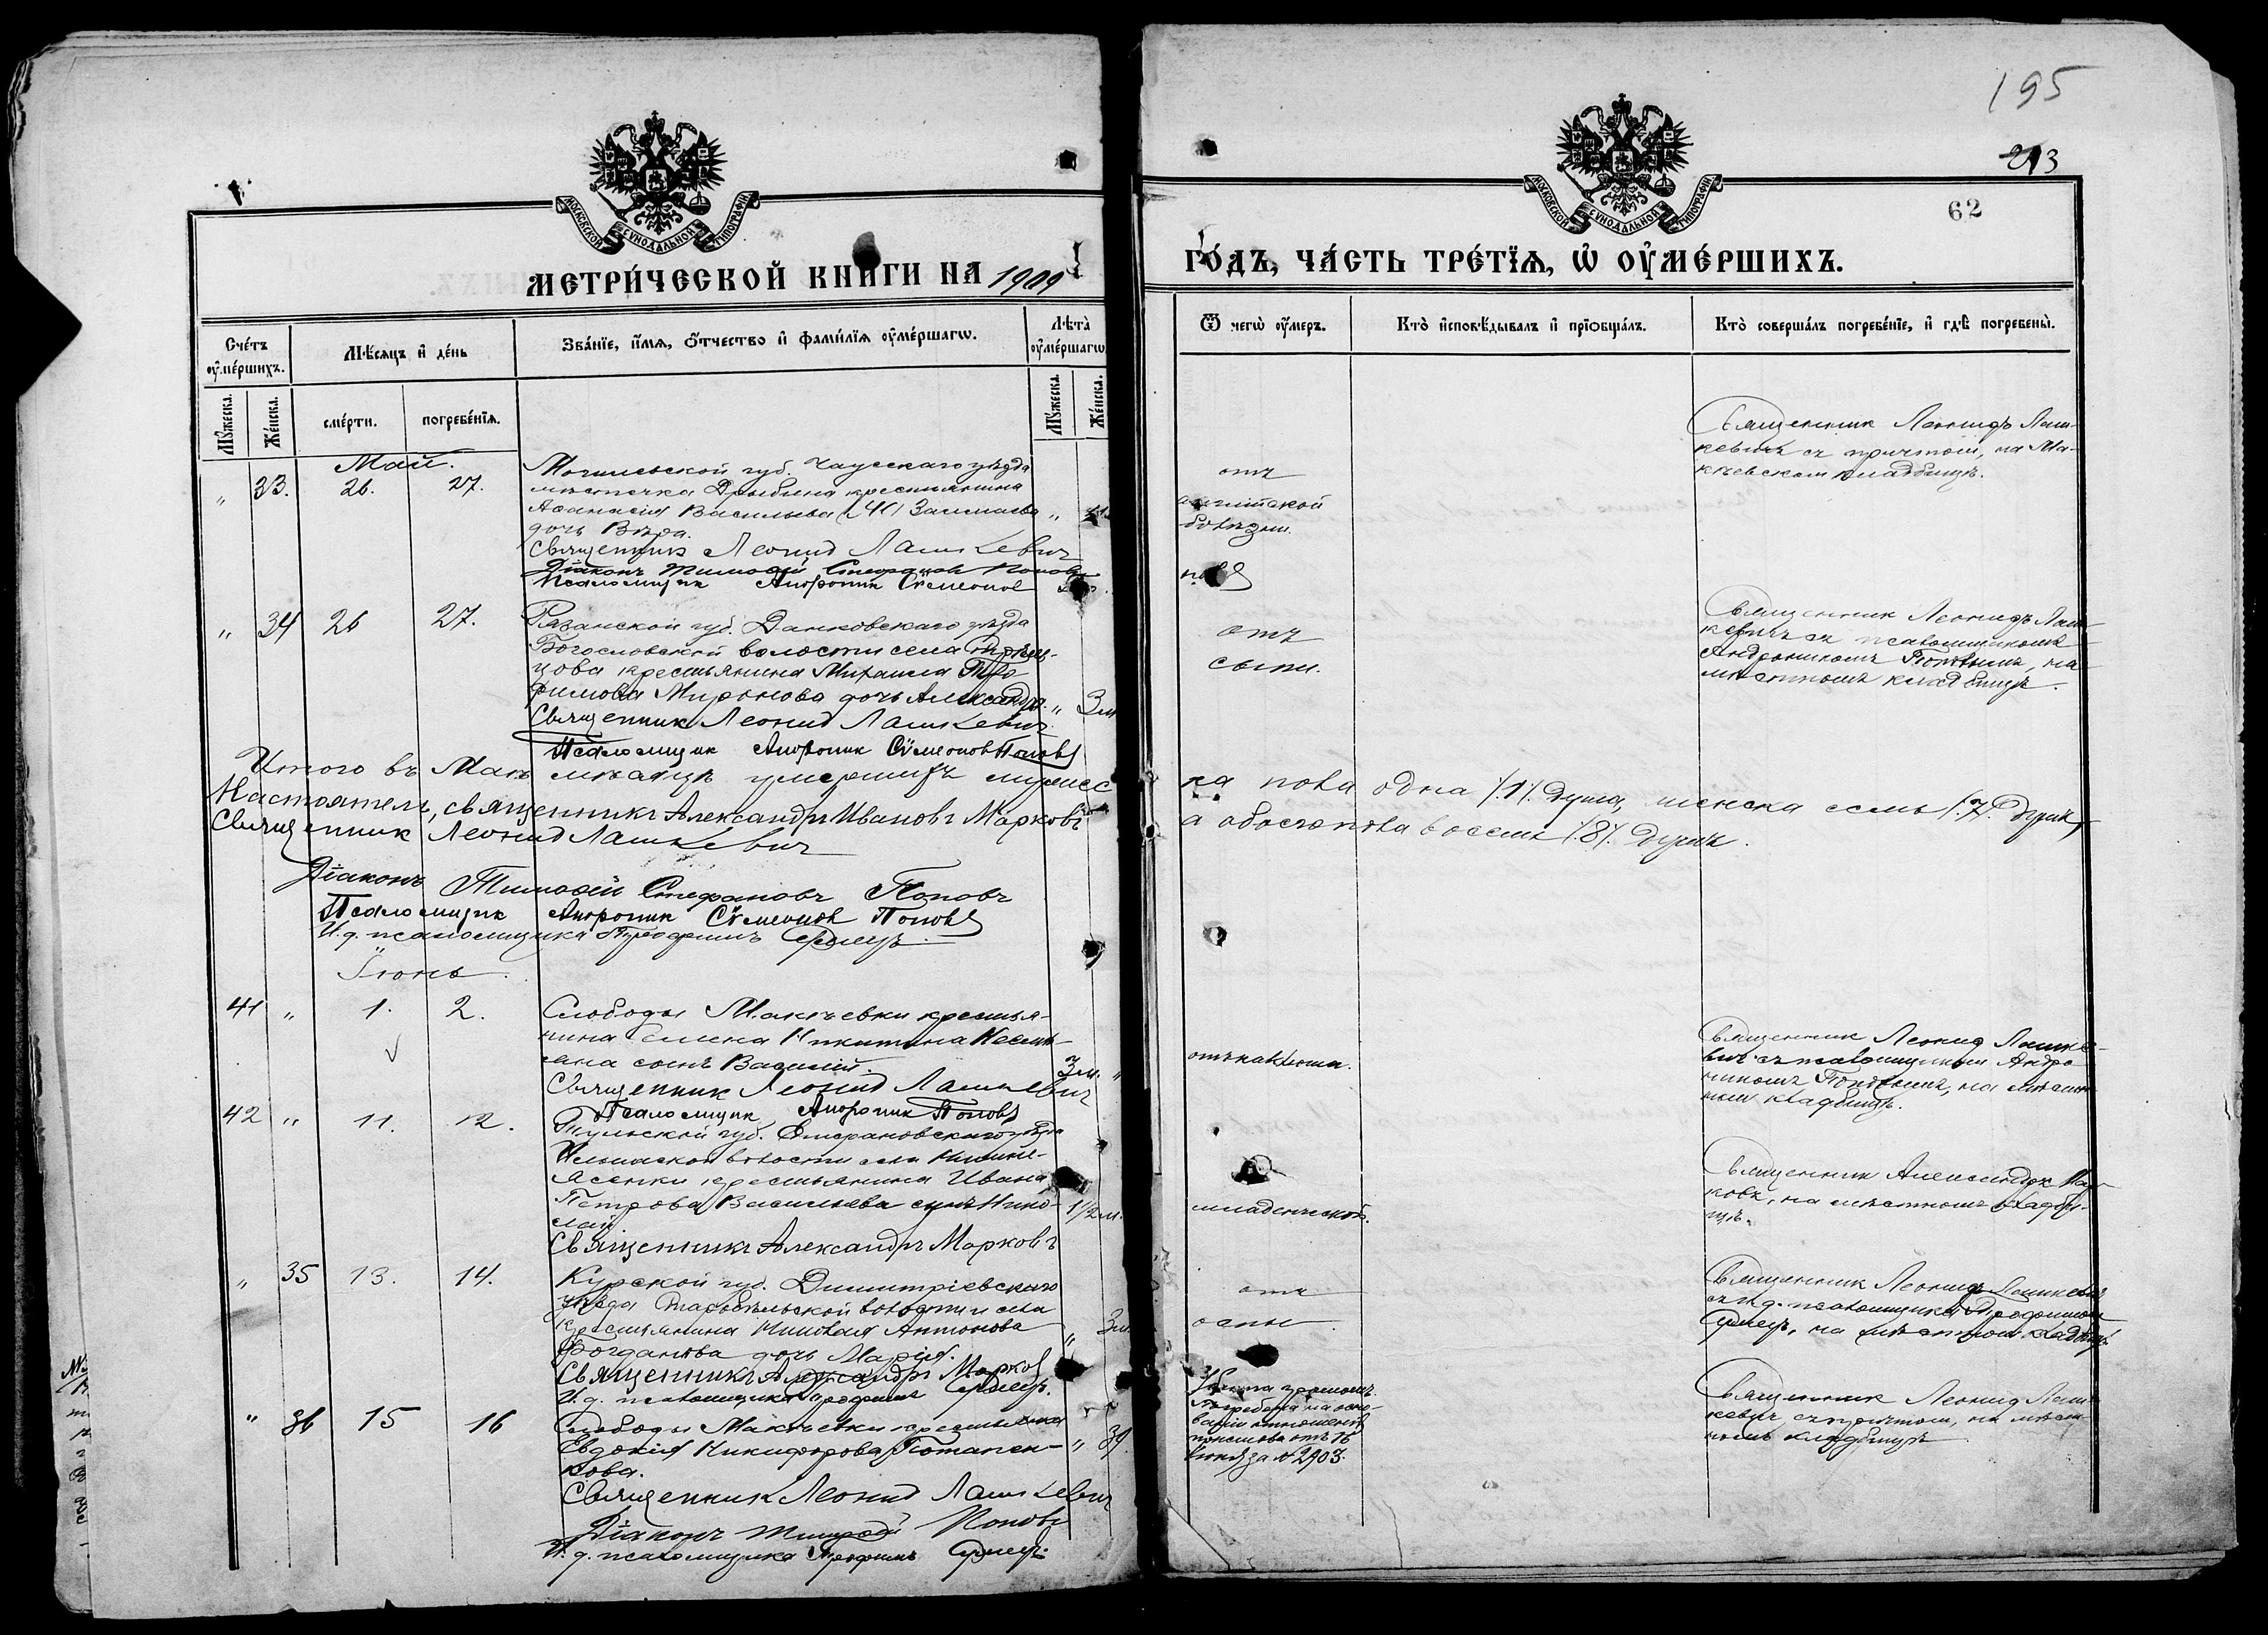 195
213
62
МОСКОВСКОЙ СѴНОДАЛЬНОЙ ТИПОГРАФІИ
МОСКОВСКОЙ СѴНОДАЛЬНОЙ ТИПОГРАФІИ
МЕТРИ́ЧЕСКОЙ КНИ́ГИ НА 1909
ГО́ДЪ, ЧА́СТЬ ТРЕ́ТЇѦ, Ѡ҆ ОУ҆МЕ́РШИХЪ.
Сче́тъ оу҆ме́ршихъ.
Мѣ́сѧцъ и҆ де́нь
Зва́нїе, и҆́мѧ, ѻ҆́тчество и҆ фами́лїѧ оу҆ме́ршагѡ.
Лѣ́та̀ оу҆ме́ршагѡ
Мꙋ́жеска.
Же́нска.
сме́рти.
погребе́нїѧ.
Мꙋ́жеска.
Же́нска.
Ѿ чегѡ̀ оу҆́меръ.
Кто̀ и҆сповѣ́дывалъ и҆ прїѡбща́лъ.
Кто̀ соверша́лъ погребе́нїе, и҆ гдѣ̀ погребены̀.
Май.
" 33. 26. 27.
Могилевской губ. Чаусскаго уѣзда
мѣстечка Дрыбина крестьянина
Аѳанасія Васильева
дочь Вѣра.
Священникъ Леонид Лашкевич
Діаконъ Тимоѳей Стефановъ Поповъ
Псаломщик Андроник Сѵмеонов
отъ
англійской
болѣзни.
Священник Леонидъ Лаш-
кевичъ съ причтом, на Ма-
кѣевском кладбищѣ.
" 34 26 27.
Рязанской губ. Данковскаго уѣзда
Богословской волости села
цова крестьянина Михаила Тро-
фимова Миронова дочь Александра. " 3 м
Священник Леонид Лашкевич
Псаломщик Андроник Сѵмеонов Поповъ
отъ
сыпи.
Священник Леонидъ Лаш-
кевичъ съ псаломщикомъ
Андроникомъ Поповымъ, на
мѣстномъ кладбищѣ.
Итого въ Маѣ мѣсяцѣ умершихъ мужес
ка пола одна /.1/. душа, женска семь /.7/. душъ,
а обоего пола восемь /.8/. душъ.
Настоятель, священникъ Александръ Ивановъ Марковъ
Священник Леонид Лашкевич
Діаконъ Тимоѳей Стефановъ Поповъ
Псаломщик Андроник Сѵмеонов Поповъ
И. д. псаломщика Трофимъ
Іюнь.
41 " 1. 2.
Слободы Макѣевки крестья-
нина Семена Никитина
сынъ Василій. 3 м. "
Священник Леонид Лашкевич
Псаломщик Андроник Поповъ
отъ коклюша.
Священник Леонид Лашке-
вич съ псаломщиком Андро
никомъ Поповымъ, на мѣст-
ном кладбищѣ.
42 " 11. 12.
Тульской губ. Епифановскаго уѣзда
волости села
крестьянина Ивана
Петрова Васильева сынъ Нико-
лай. 1 1/2 м.
Священникъ Александръ Марковъ
младенческой.
Священник Александръ Мар-
ковъ, на мѣстномъ кладби-
щѣ.
" 35 13. 14.
Курской губ. Димитріевскаго
уѣзда волости села
крестьянина Николая Антонова
Богданова дочь Марія. " 3 м.
Священникъ Александръ Марковъ
И. д. псаломщика Трофимъ
отъ
оспы.
Священник Леонидъ Лашкевич
съ и. д. псаломщика Трофимом
на мѣстном кладбищѣ.
" 36 15 16
Слободы Макѣевки крестьянка
Евдокія Никифорова Потапен-
кова. " 39.
Священник Леонид Лашкевич
Діаконъ Тимоѳей Поповъ
И. д. псаломщика Трофимъ
Убита громомъ.
Погребена на осно-
ваніи отношенія
отъ 16
Іюня за № 2903.
Священник Леонид Лаш-
кевич съ причтом, на мѣст-
ном кладбищѣ